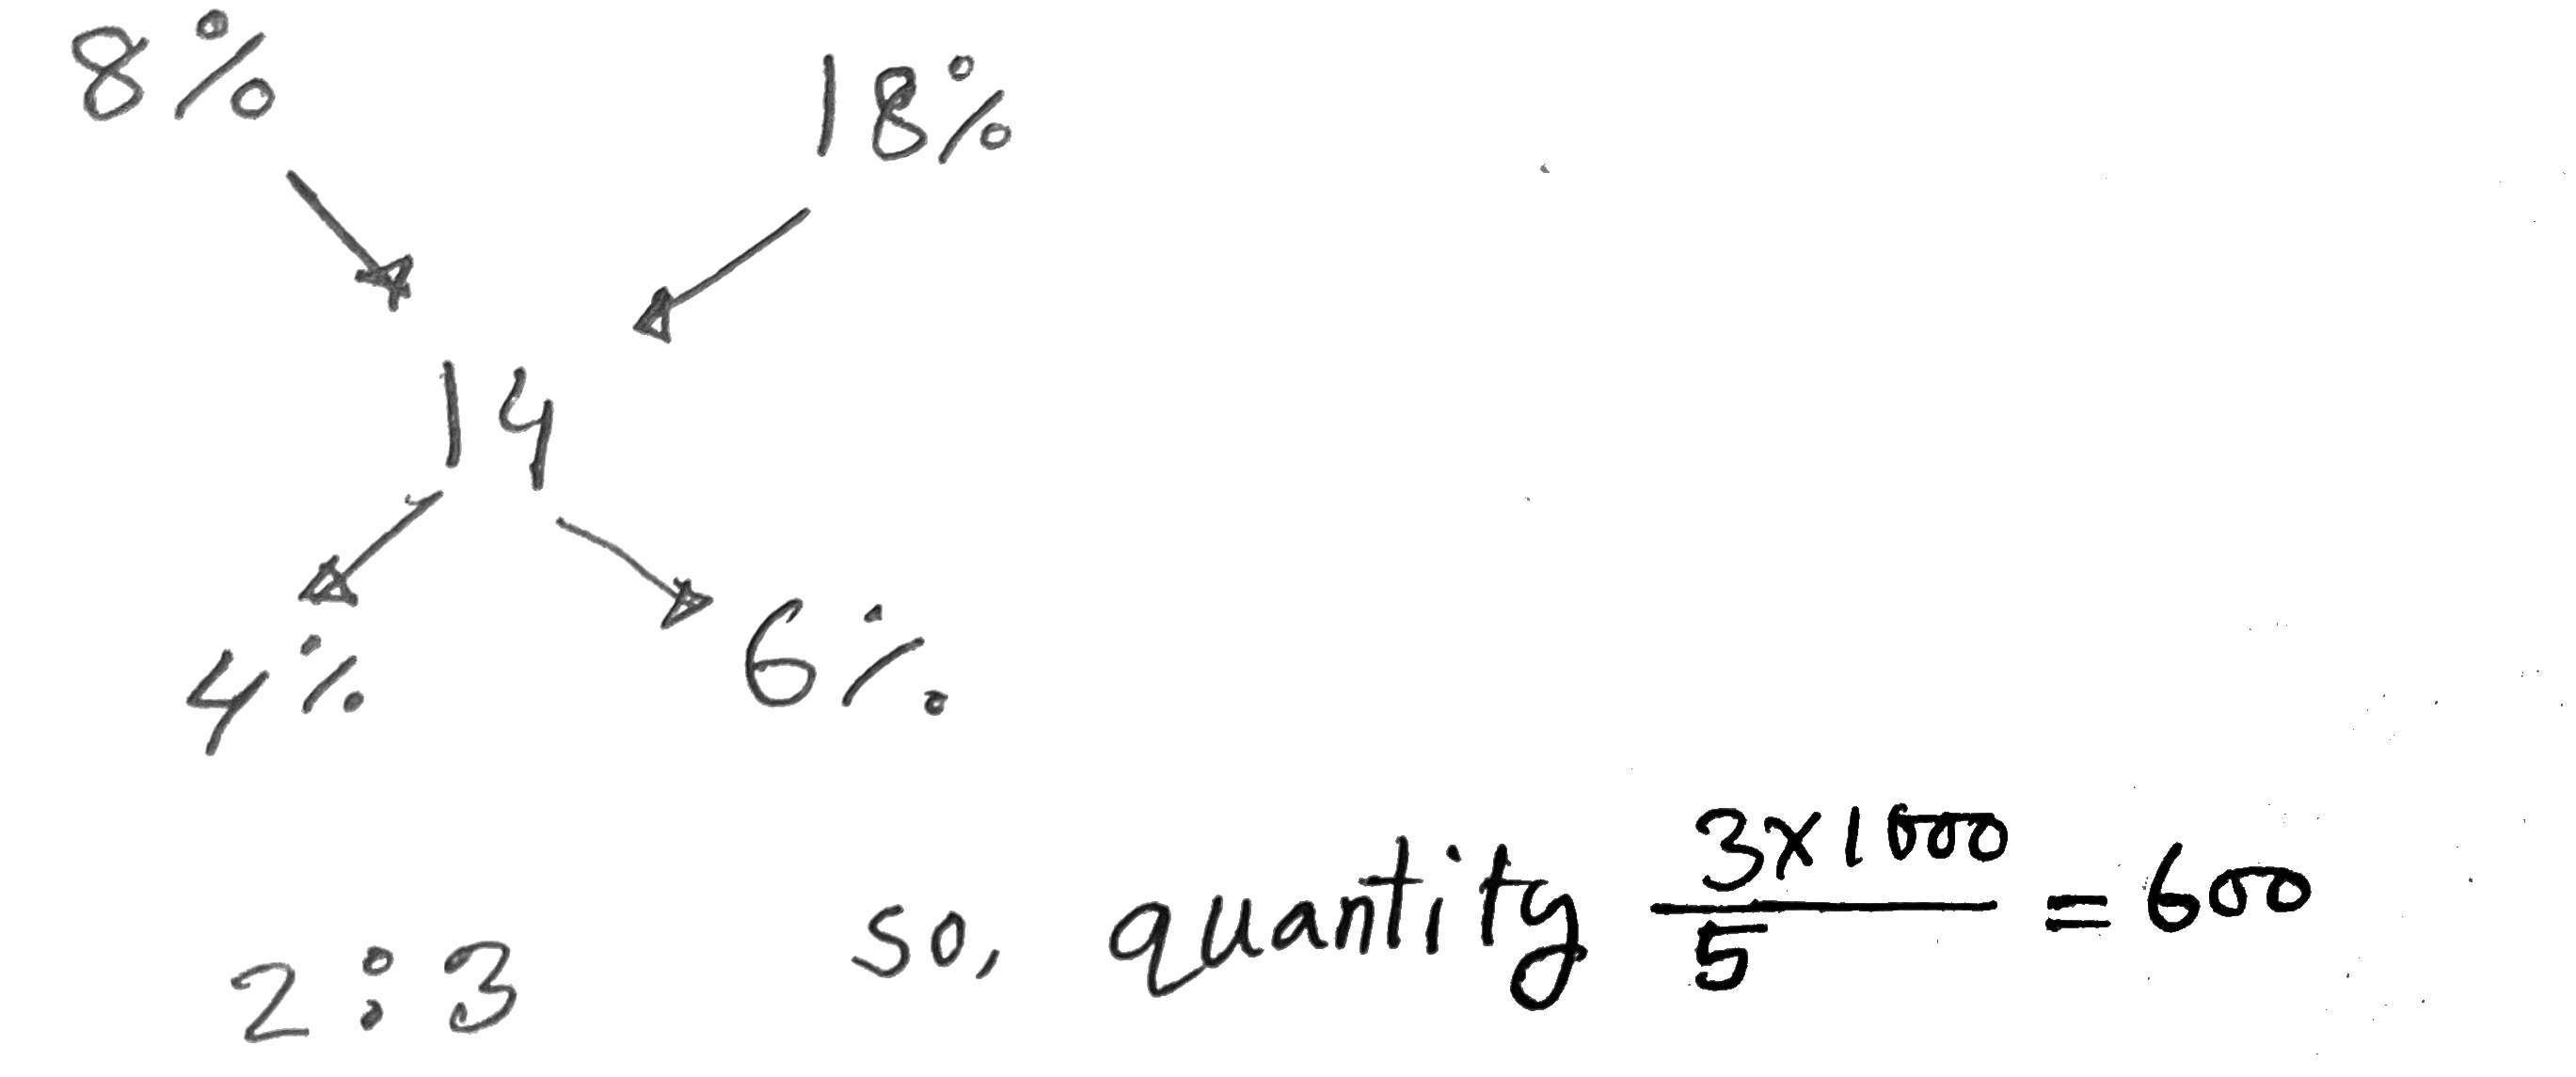 8% 18%
14
4% 6%
2:3 so, quantity 3×1000/5 = 600